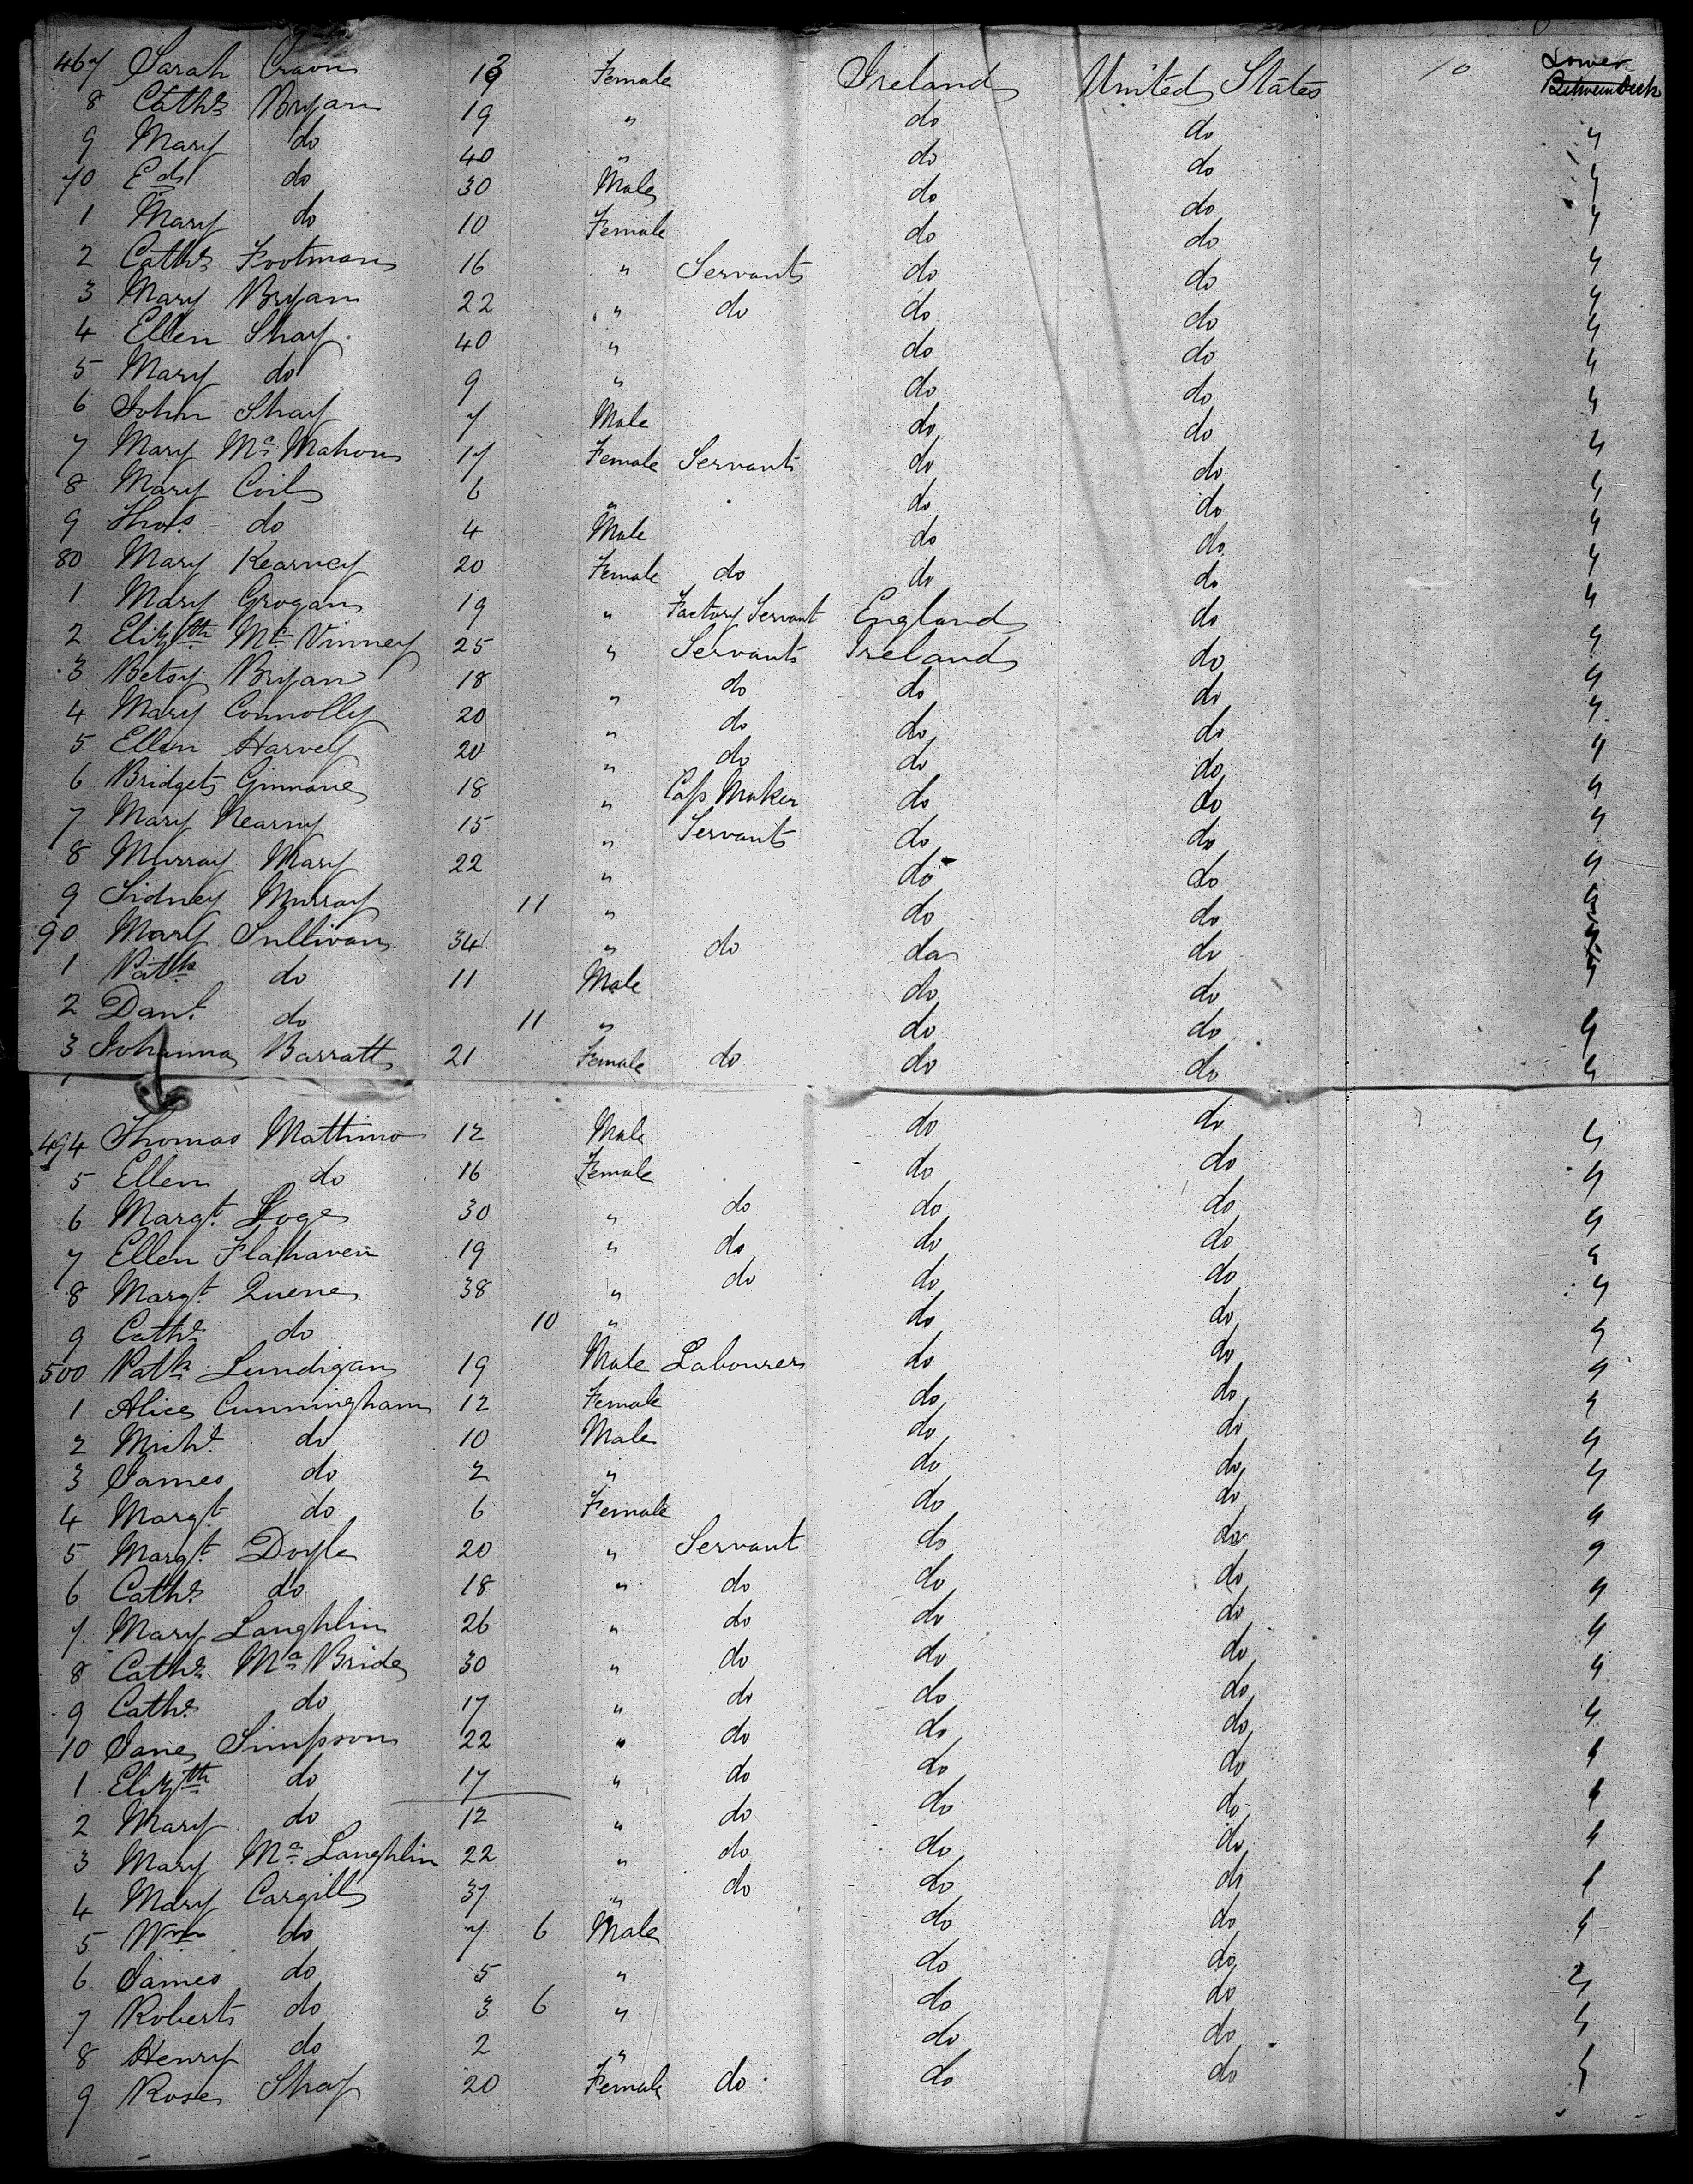 467 Sarah Craven 19 Female Ireland United States 10 Lower Between Deck
8 Cathe Bryan 19 " do do "
9 Mary do 40 " do do "
70 Ed do 30 Male do do "
1 Mary do 10 Female do do "
2 Cathe Footman 16 " Servant do do "
3 Mary Bryan 22 " do do do "
4 Ellen Shay 40 " do do "
5 Mary do 9 " do do "
6 John Shay 7 Male do do "
7 Mary Mc Mahon 17 Female Servant do do "
8 Mary Coil 6 " do do "
9 Thos do 4 Male do do "
80 Mary Kearney 20 Female do do do "
1 Mary Grogan 19 " Factory Servant England do "
2 Elizth Mc Vinney 25 " Servant Ireland do "
3 Betsy Bryan 18 " do do do "
4 Mary Connolly 20 " do do do "
5 Ellen Harvey 20 " do do do "
6 Bridget Ginnane 18 " Cap Maker do do "
7 Mary Nearny 15 " Servant do do "
8 Murray Mary 22 " do do "
9 Sidney Murray 11 " do do "
90 Mary Sullivan 34 " do do do "
1 Patk do 11 Male do do "
2 Danl do 11 " do do "
3 Johanna Barratt 21 Female do do do "
494 Thomas Mattimo 12 Male do do "
5 Ellen do 16 Female do do "
6 Margt Loge 30 " do do do "
7 Ellen Flathaven 19 " do do do "
8 Margt Quene 38 " do do do "
9 Cathe do 10 " do do "
500 Patk Lundigan 19 Male Labourer do do "
1 Alice Cunningham 12 Female do do "
2 Michl do 10 Male do do "
3 James do 2 " do do "
4 Margt do 6 Female do do "
5 Margt Doyle 20 " Servant do do "
6 Cathe do 18 " do do do "
7 Mary Laughlin 26 " do do do "
8 Cathe Mc Bride 30 " do do do "
9 Cathe do 17 " do do do "
10 Jane Simpson 22 " do do do "
1 Elizth do 17 " do do do "
2 Mary do 12 " do do do "
3 Mary Mc Laughlin 22 " do do do "
4 Mary Cargill 37 " do do do "
5 Wm do 7 6 Male do do "
6 James do 5 " do do "
7 Robert do 3 6 " do do "
8 Henry do 2 " do do "
9 Rose Shay 20 Female do do do